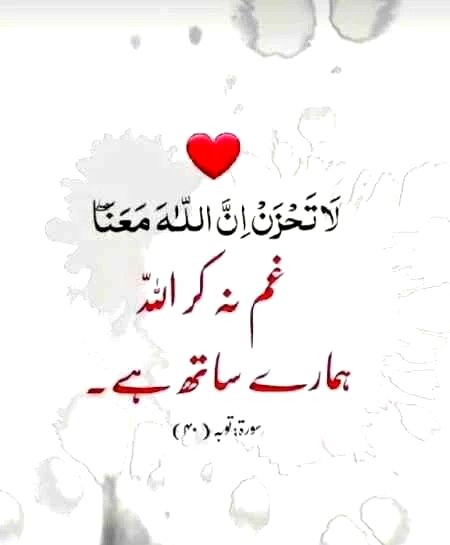 لَا تَحْزَنْ اِنَّ اللّٰهَ مَعَنَاۚ
غم نہ کر اللہ
ہمارے ساتھ ہے۔
سورۃ: توبہ (۴۰)